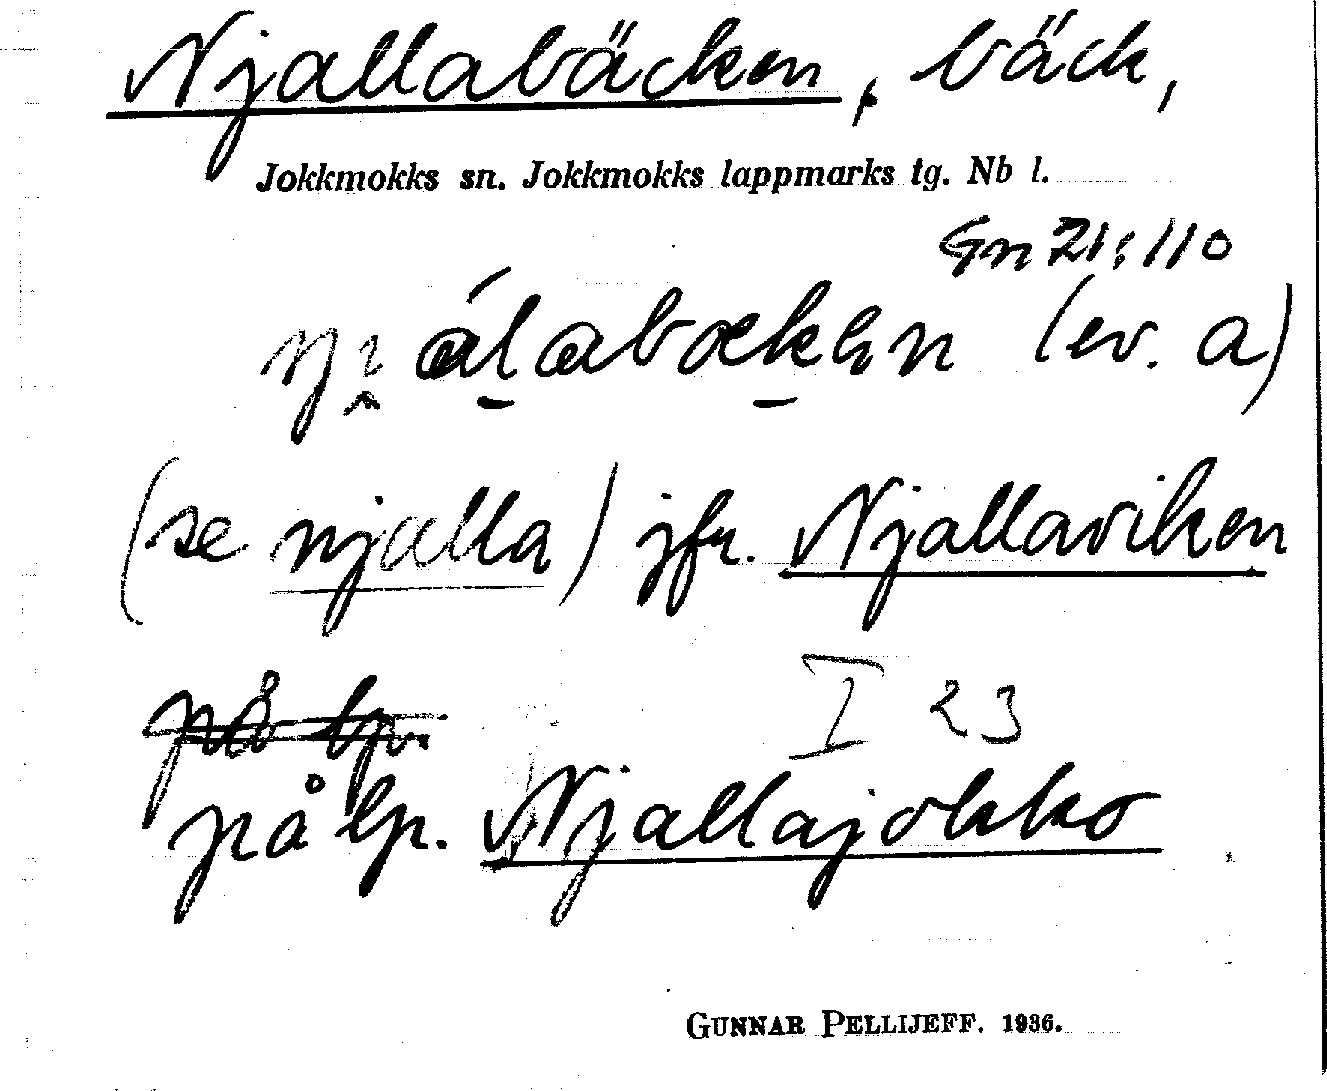 Njallabäcken, bäck,
Jokkmokks sn. Jokkmokks lappmarks tg. Nb l.
Gn 21:110
(ev. a)
(se njalla) jfr. Njallaviken
på lp. I 23
på lp. Njallajokko
GUNNAR PELLIJEFF. 1936.